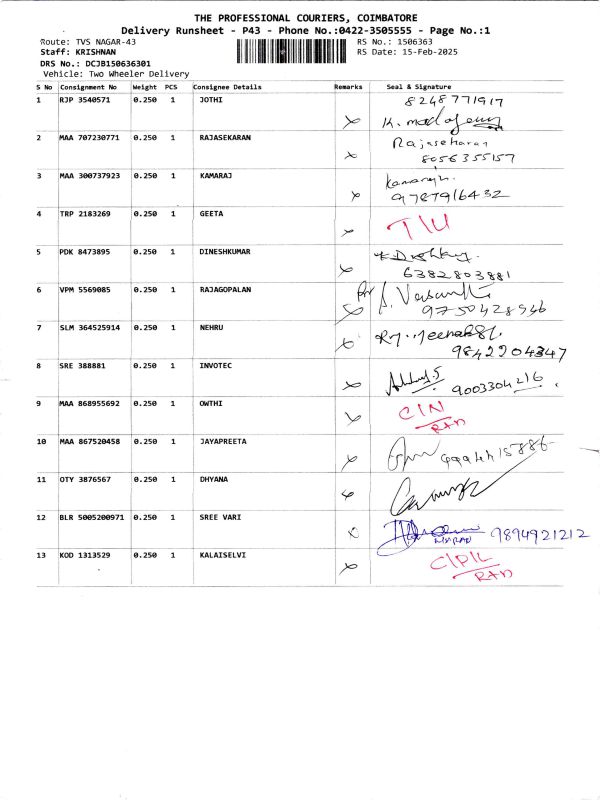 THE PROFESSIONAL COURIERS, COIMBATORE
Delivery Runsheet - P43 - Phone No.:0422-3505555 - Page No.:1
Route: TVS NAGAR-43 RS No.: 1506363
Staff: KRISHNAN RS Date: 15-Feb-2025
DRS No.: DCJB150636301
Vehicle: Two Wheeler Delivery
S No Consignment No Weight PCS Consignee Details Remarks Seal & Signature
1 RJP 3540571 0.250 1 JOTHI 8248771917
2 MAA 707230771 0.250 1 RAJASEKARAN Rajasekaran
8056355157
3 MAA 300737923 0.250 1 KAMARAJ
9787916432
4 TRP 2183269 0.250 1 GEETA T/U
5 PDK 8473895 0.250 1 DINESHKUMAR
6382803881
6 VPM 5569085 0.250 1 RAJAGOPALAN
9750428546
7 SLM 364525914 0.250 1 NEHRU
9842904347
8 SRE 388881 0.250 1 INVOTEC 9003304216
9 MAA 868955692 0.250 1 OWTHI C/N
RTD
10 MAA 867520458 0.250 1 JAYAPREETA
11 OTY 3876567 0.250 1 DHYANA
12 BLR 5005200971 0.250 1 SREE VARI 9894921212
13 KOD 1313529 0.250 1 KALAISELVI C/P/L
RTD